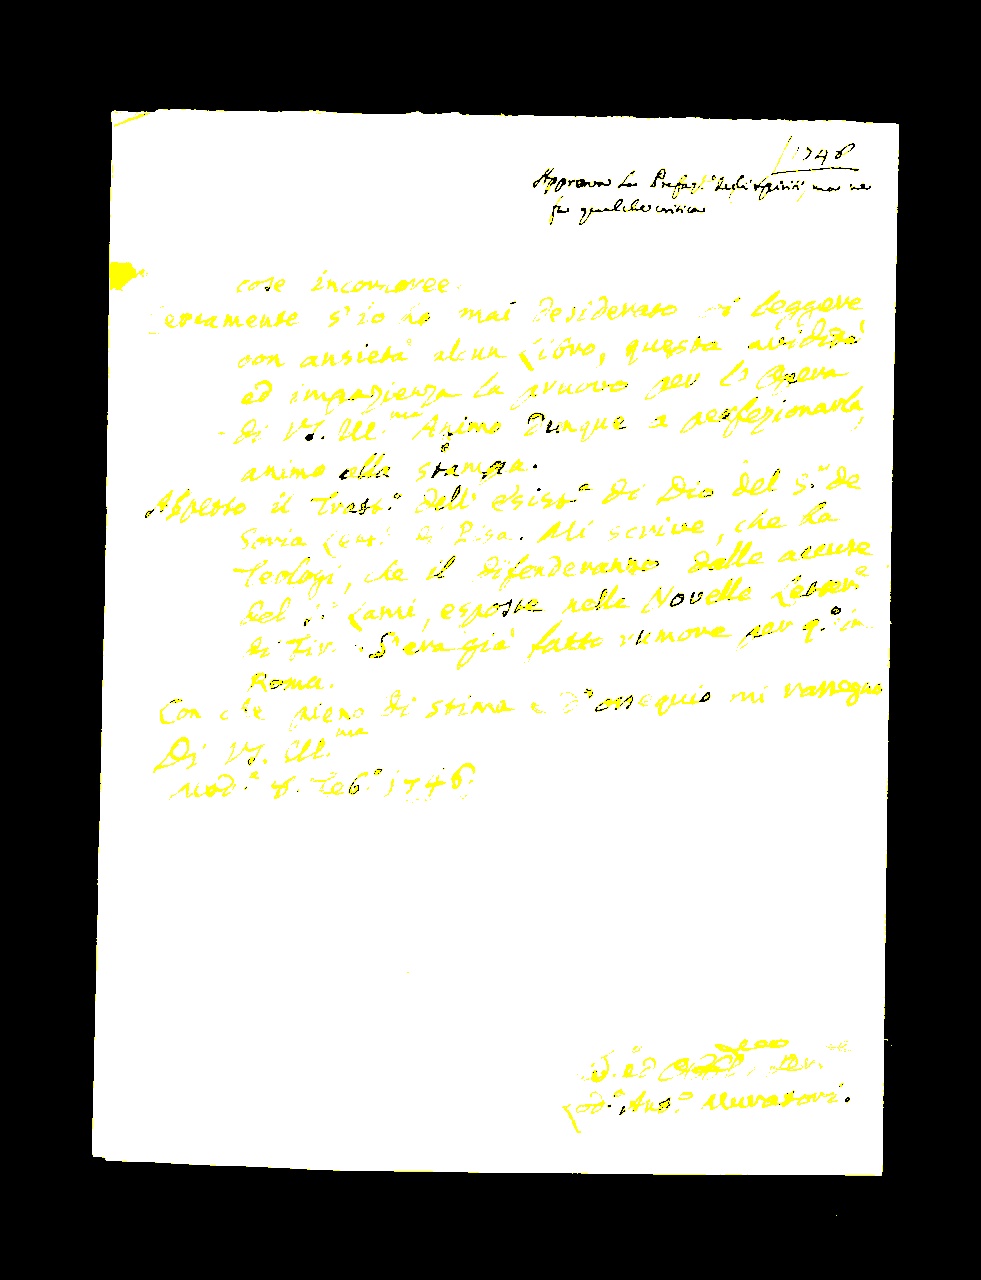 1746
Approva la Prefaz. degli Spiriti, ma ne
fa qualche critica
cose incorporee.
Certamente s'io ho mai desiderato di leggere
con ansietà alcun Libro, questa avidità
ed impazienza la pruovo per la Opera
di VS. Ill.ma Animo dunque a perfezionarla,
animo alla stampa.
Aspetto il Tratt.o dell'esist.a di Dio del S.r de
Soria Lett. di Pisa. Mi scrive, che ha
Teologi, che il difenderanno dalle accuse
del S. Lami, esposte nelle Novelle Letter.e
di Fir. S'era già fatto rumore per q.o in
Roma.
Con che pieno di stima e d'ossequio mi rassegno
Di VS. Ill.ma
Mod.a 8. Feb.o 1746.
D. ed Obbl. Ser.re
Lod.o Ant.o Muratori.